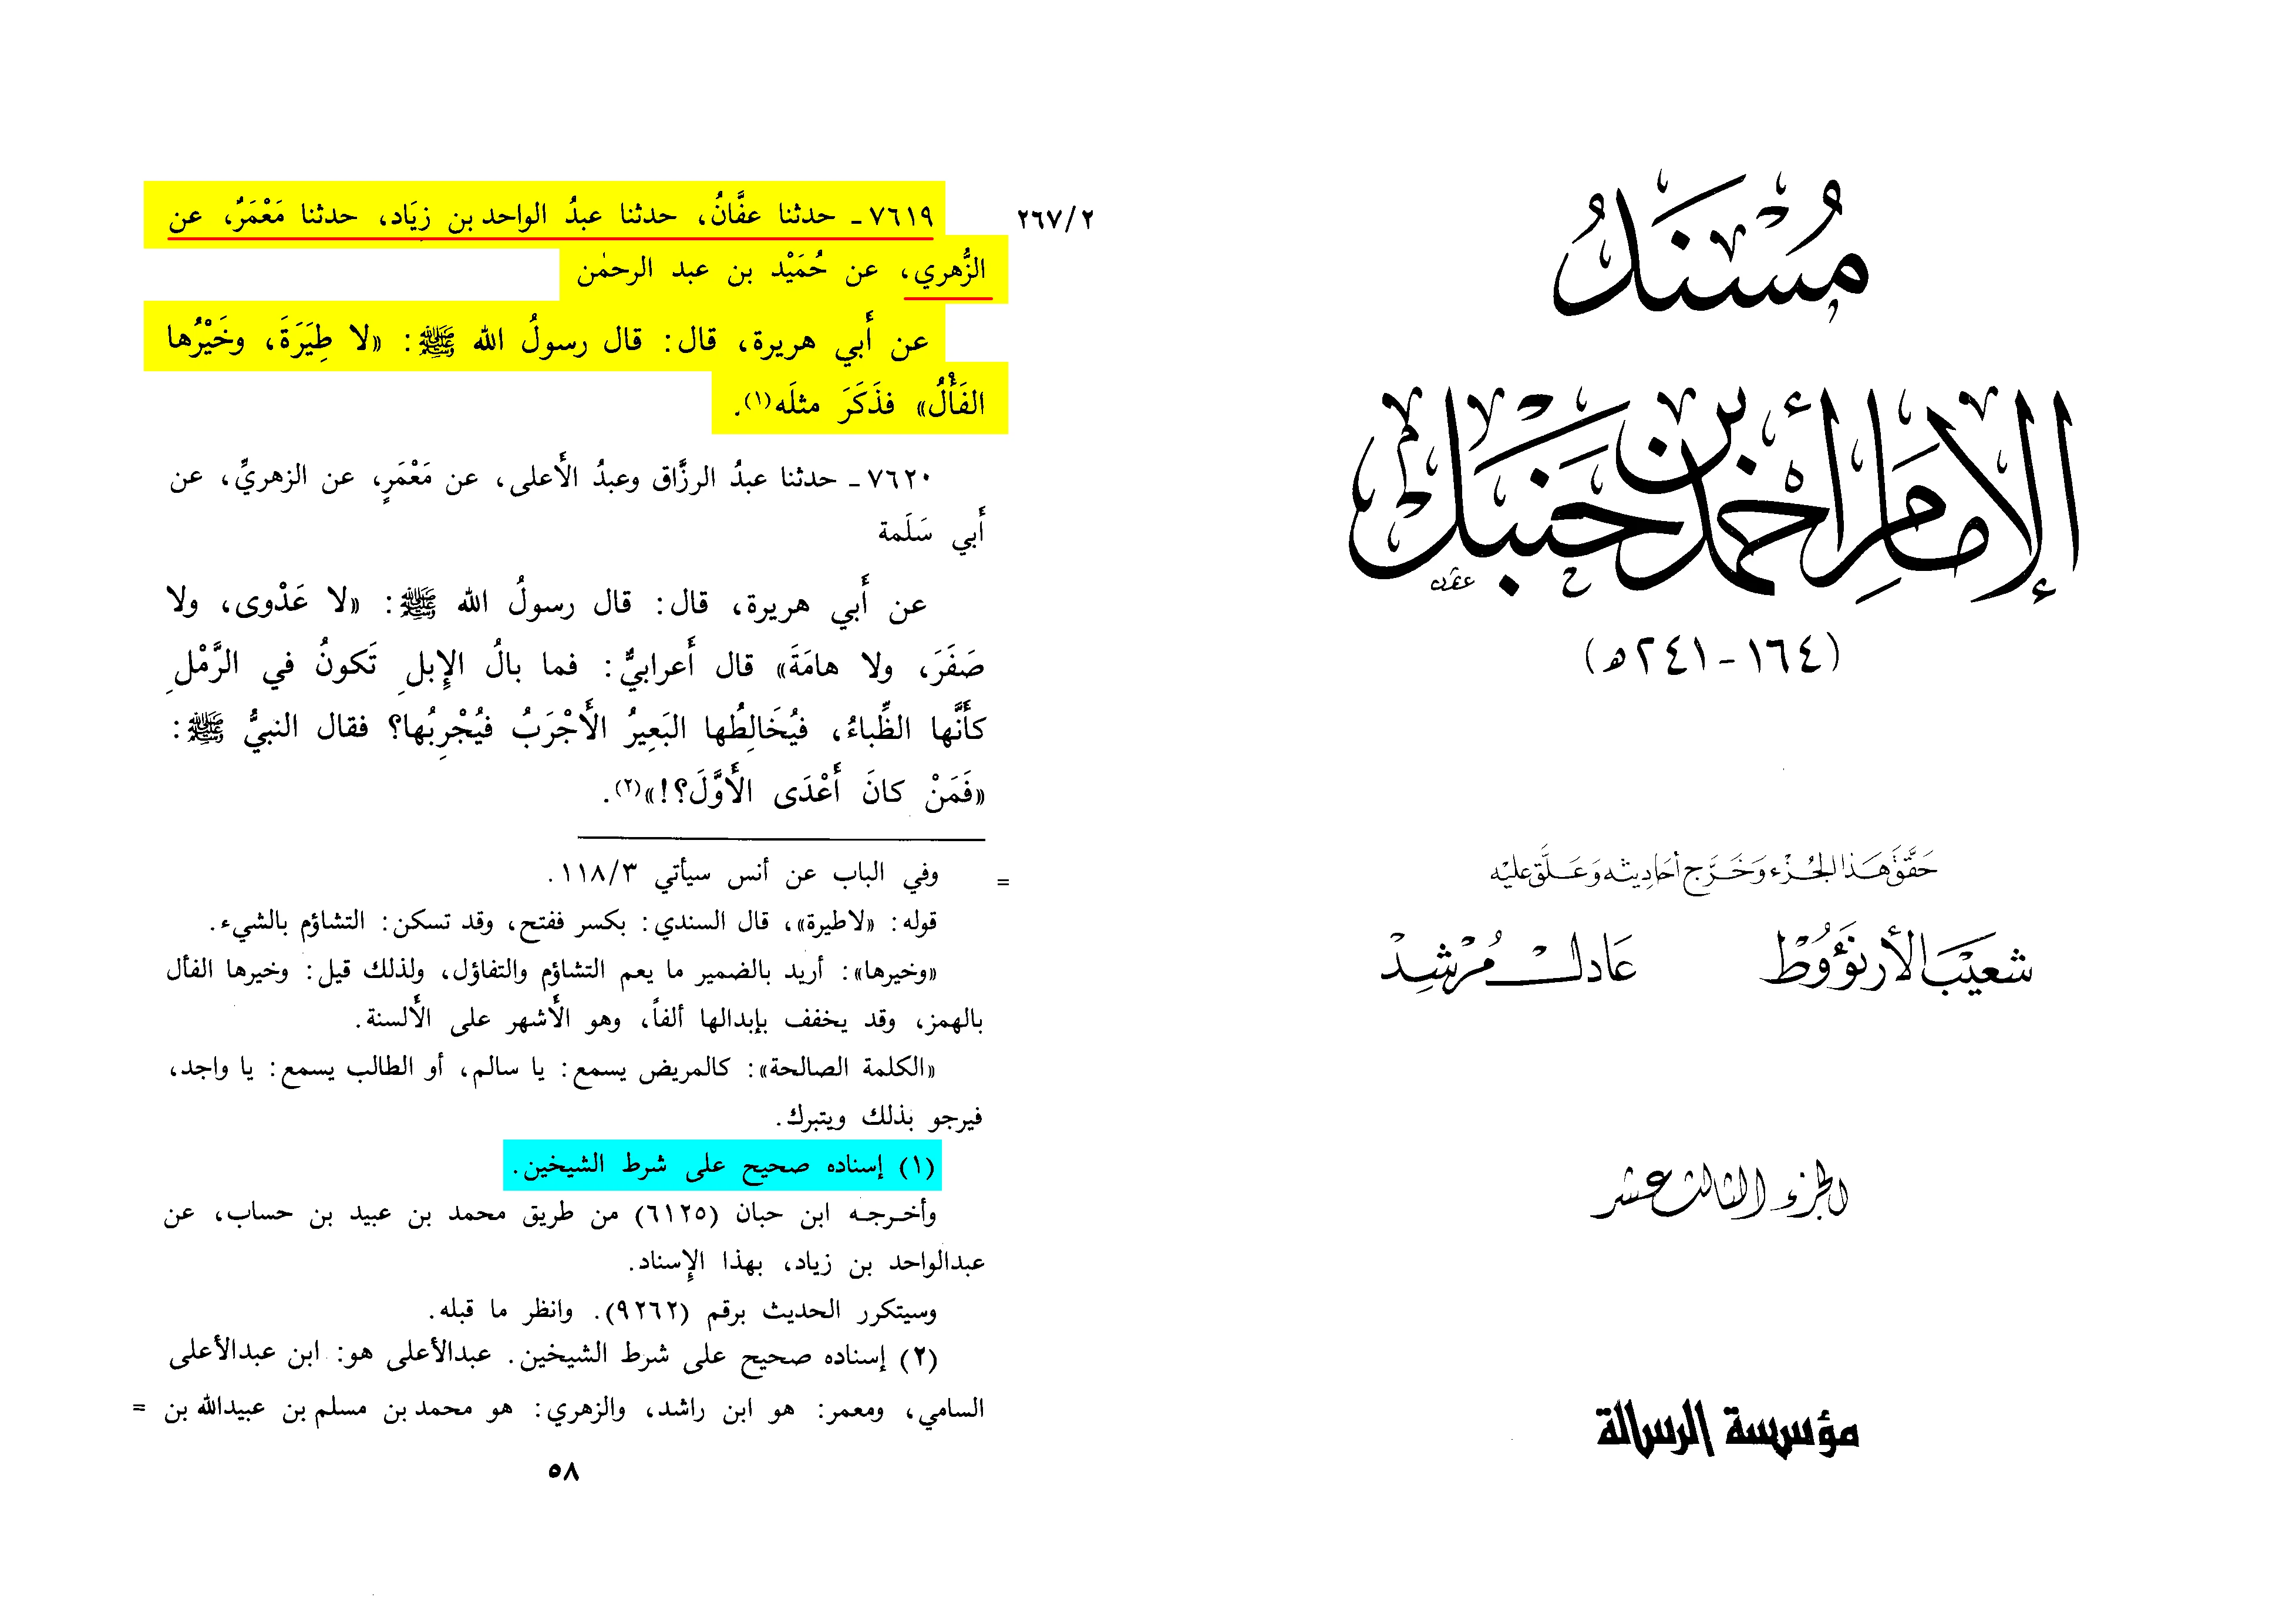 مُسْنَدُ
الإمامِ أحْمَد بن حَنْبَل
(١٦٤ - ٢٤١ هـ)
حَقَّقَ هَذا الجُزْء وَخَرَّج أحَاديثه وَعَلَّق عليْه
شعيْبَ الأرنَؤُوْط عَادل مُرْشِدْ
الجزء الثالث عشر
مؤسسة الرسالة
٢٦٧/٢
٧٦١٩ ـ حدثنا عفَّانُ، حدثنا عبدُ الواحد بن زِيَاد، حدثنا مَعْمَرٌ، عن
الزُّهري، عن حُمَيْد بن عبد الرحمٰن
عن أَبي هريرة، قال: قال رسولُ الله ﷺ: «لا طِيَرَةَ، وخَيْرُها
الفَأْلُ» فذَكَرَ مثلَه(١).
٧٦٢٠ ـ حدثنا عبدُ الرزَّاق وعبدُ الأَعلى، عن مَعْمَرٍ، عن الزهريِّ، عن
أَبي سَلَمة
عن أَبي هريرة، قال: قال رسولُ الله ﷺ: «لا عَدْوى، ولا
صَفَرَ، ولا هامَةَ» قال أَعرابيٌّ: فما بالُ الإِبلِ تَكونُ في الرَّمْلِ
كأَنَّها الظِّباءُ، فيُخَالِطُها البَعِيرُ الأَجْرَبُ فيُجْرِبُها؟ فقال النبيُّ ﷺ:
«فَمَنْ كانَ أَعْدَى الأَوَّلَ؟!»(٢).
= وفي الباب عن أنس سيأتي ١١٨/٣.
قوله: «لاطيرة»، قال السندي: بكسر ففتح، وقد تسكن: التشاؤم بالشيء.
«وخيرها»: أريد بالضمير ما يعم التشاؤم والتفاؤل، ولذلك قيل: وخيرها الفأل
بالهمز، وقد يخفف بإبدالها ألفاً، وهو الأشهر على الألسنة.
«الكلمة الصالحة»: كالمريض يسمع: يا سالم، أو الطالب يسمع: يا واجد،
فيرجو بذلك ويتبرك.
(١) إسناده صحيح على شرط الشيخين.
وأخرجه ابن حبان (٦١٢٥) من طريق محمد بن عبيد بن حساب، عن
عبدالواحد بن زياد، بهذا الإسناد.
وسيتكرر الحديث برقم (٩٢٦٢). وانظر ما قبله.
(٢) إسناده صحيح على شرط الشيخين. عبدالأعلى هو: ابن عبدالأعلى
السامي، ومعمر: هو ابن راشد، والزهري: هو محمد بن مسلم بن عبيدالله بن =
٥٨